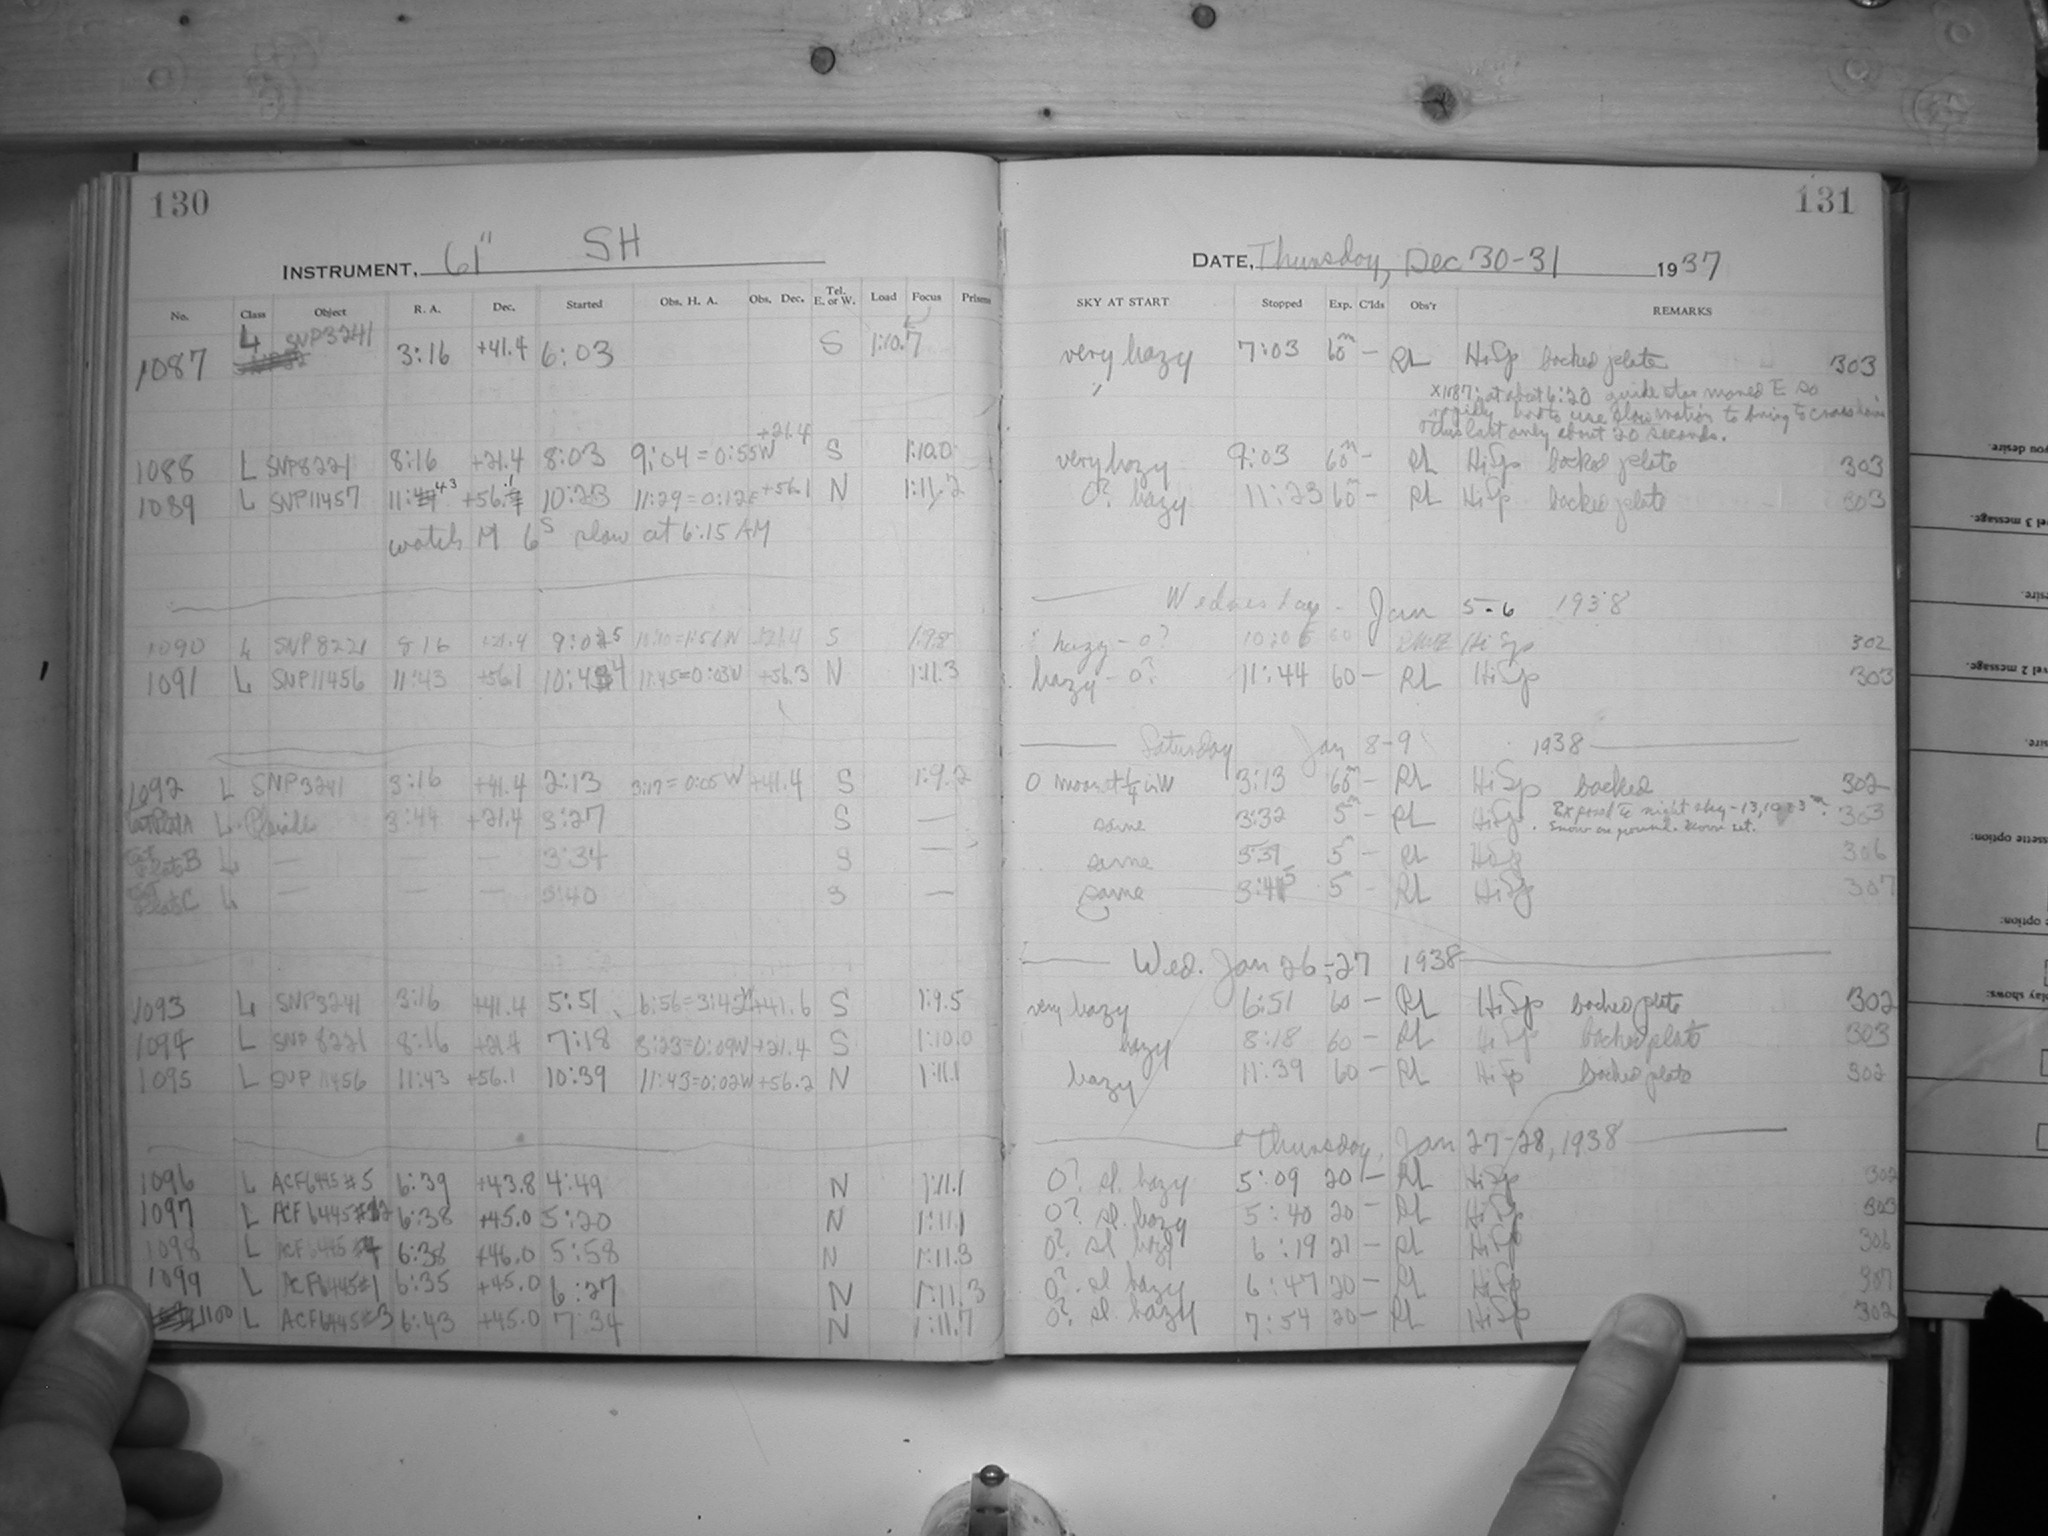 130
INSTRUMENT, 61" SH
No. Class Object R. A. Dec. Started Obs. H. A. Obs. Dec. Tel. E. or W. Load Focus Prisms
1087 L SNP3241 3:16 +41.4 6:03 S 1:10.7
1088 L SNP8221 8:16 +21.4 8:03 9:04=0:55W +21.4 S 1:10.0
1089 L SNP11457 11:43 +56.1 10:23 11:29=0:12E +56.1 N 1:11.2
watch M 6s slow at 6:15 AM
1090 L SNP8221 8 16 +21.4 9:05 +21.4 S 1:9.8
1091 L SNP11456 11:43 +56.1 10:44 11:45=0:03W +56.3 N 1:11.3
1092 L SNP3241 3:16 +41.4 2:13 3:17=0:05W +41.4 S 1:9.2
L 3:44 +21.4 3:27 S —
B L — — — 3:34 S —
C L — — — 3:40 S —
1093 L SNP3241 3:16 +41.4 5:51 +41.6 S 1:9.5
1094 L SNP8221 8:16 +21.4 7:18 8:23=0:09W +21.4 S 1:10.0
1095 L SNP11456 11:43 +56.1 10:39 11:43=0:02W +56.2 N 1:11.1
1096 L ACF6445#5 6:39 +43.8 4:49 N 1:11.1
1097 L ACF6445#2 6:38 +45.0 5:20 N 1:11.1
1098 L ACF6445#4 6:38 +46.0 5:58 N 1:11.3
1099 L ACF6445#1 6:35 +45.0 6:27 N 1:11.3
1100 L ACF6445#3 6:43 +45.0 7:34 N 1:11.7
131
DATE, Thursday, Dec 30-31 1937
SKY AT START Stopped Exp. C'lds Obs'r REMARKS
very hazy 7:03 60m — RL HiSp backed plate 303
X1087: at about 6:20 guide star moved E so
rapidly had to use slow motion to bring to crosshair
This last only about 20 seconds.
very hazy 9:03 60m — RL HiSp backed plate 303
0? hazy 11:23 60m — RL HiSp backed plate 303
Wednesday - Jan 5-6 1938
hazy - 0? 60 HiSp 302
hazy - 0? 11:44 60 — RL HiSp 303
Saturday Jan 8-9 1938
0 moon at 1/4 in W 3:13 60m — RL HiSp backed 302
same 3:32 5m — RL HiSp. Exposed to night sky - 303
Snow on ground. Moon set.
same 5 — RL HiSp 306
same 3:45 5 — RL HiSp 307
Wed. Jan 26-27 1938
very hazy 6:51 60 — RL HiSp backed plate 302
hazy 8:18 60 — RL HiSp backed plate 303
hazy 11:39 60 — RL HiSp backed plate 302
Thursday, Jan 27-28, 1938
0? sl. hazy 5:09 20 — RL HiSp 302
0? sl. hazy 5:40 20 — RL HiSp 303
0? sl. hazy 6:19 21 — RL HiSp 306
0? sl. hazy 6:47 20 — RL HiSp 307
0? sl. hazy 7:54 20 — RL HiSp 302
you desire.
el 3 message.
sire.
vel 2 message.
sire.
ssette option:
e option:
play shows: